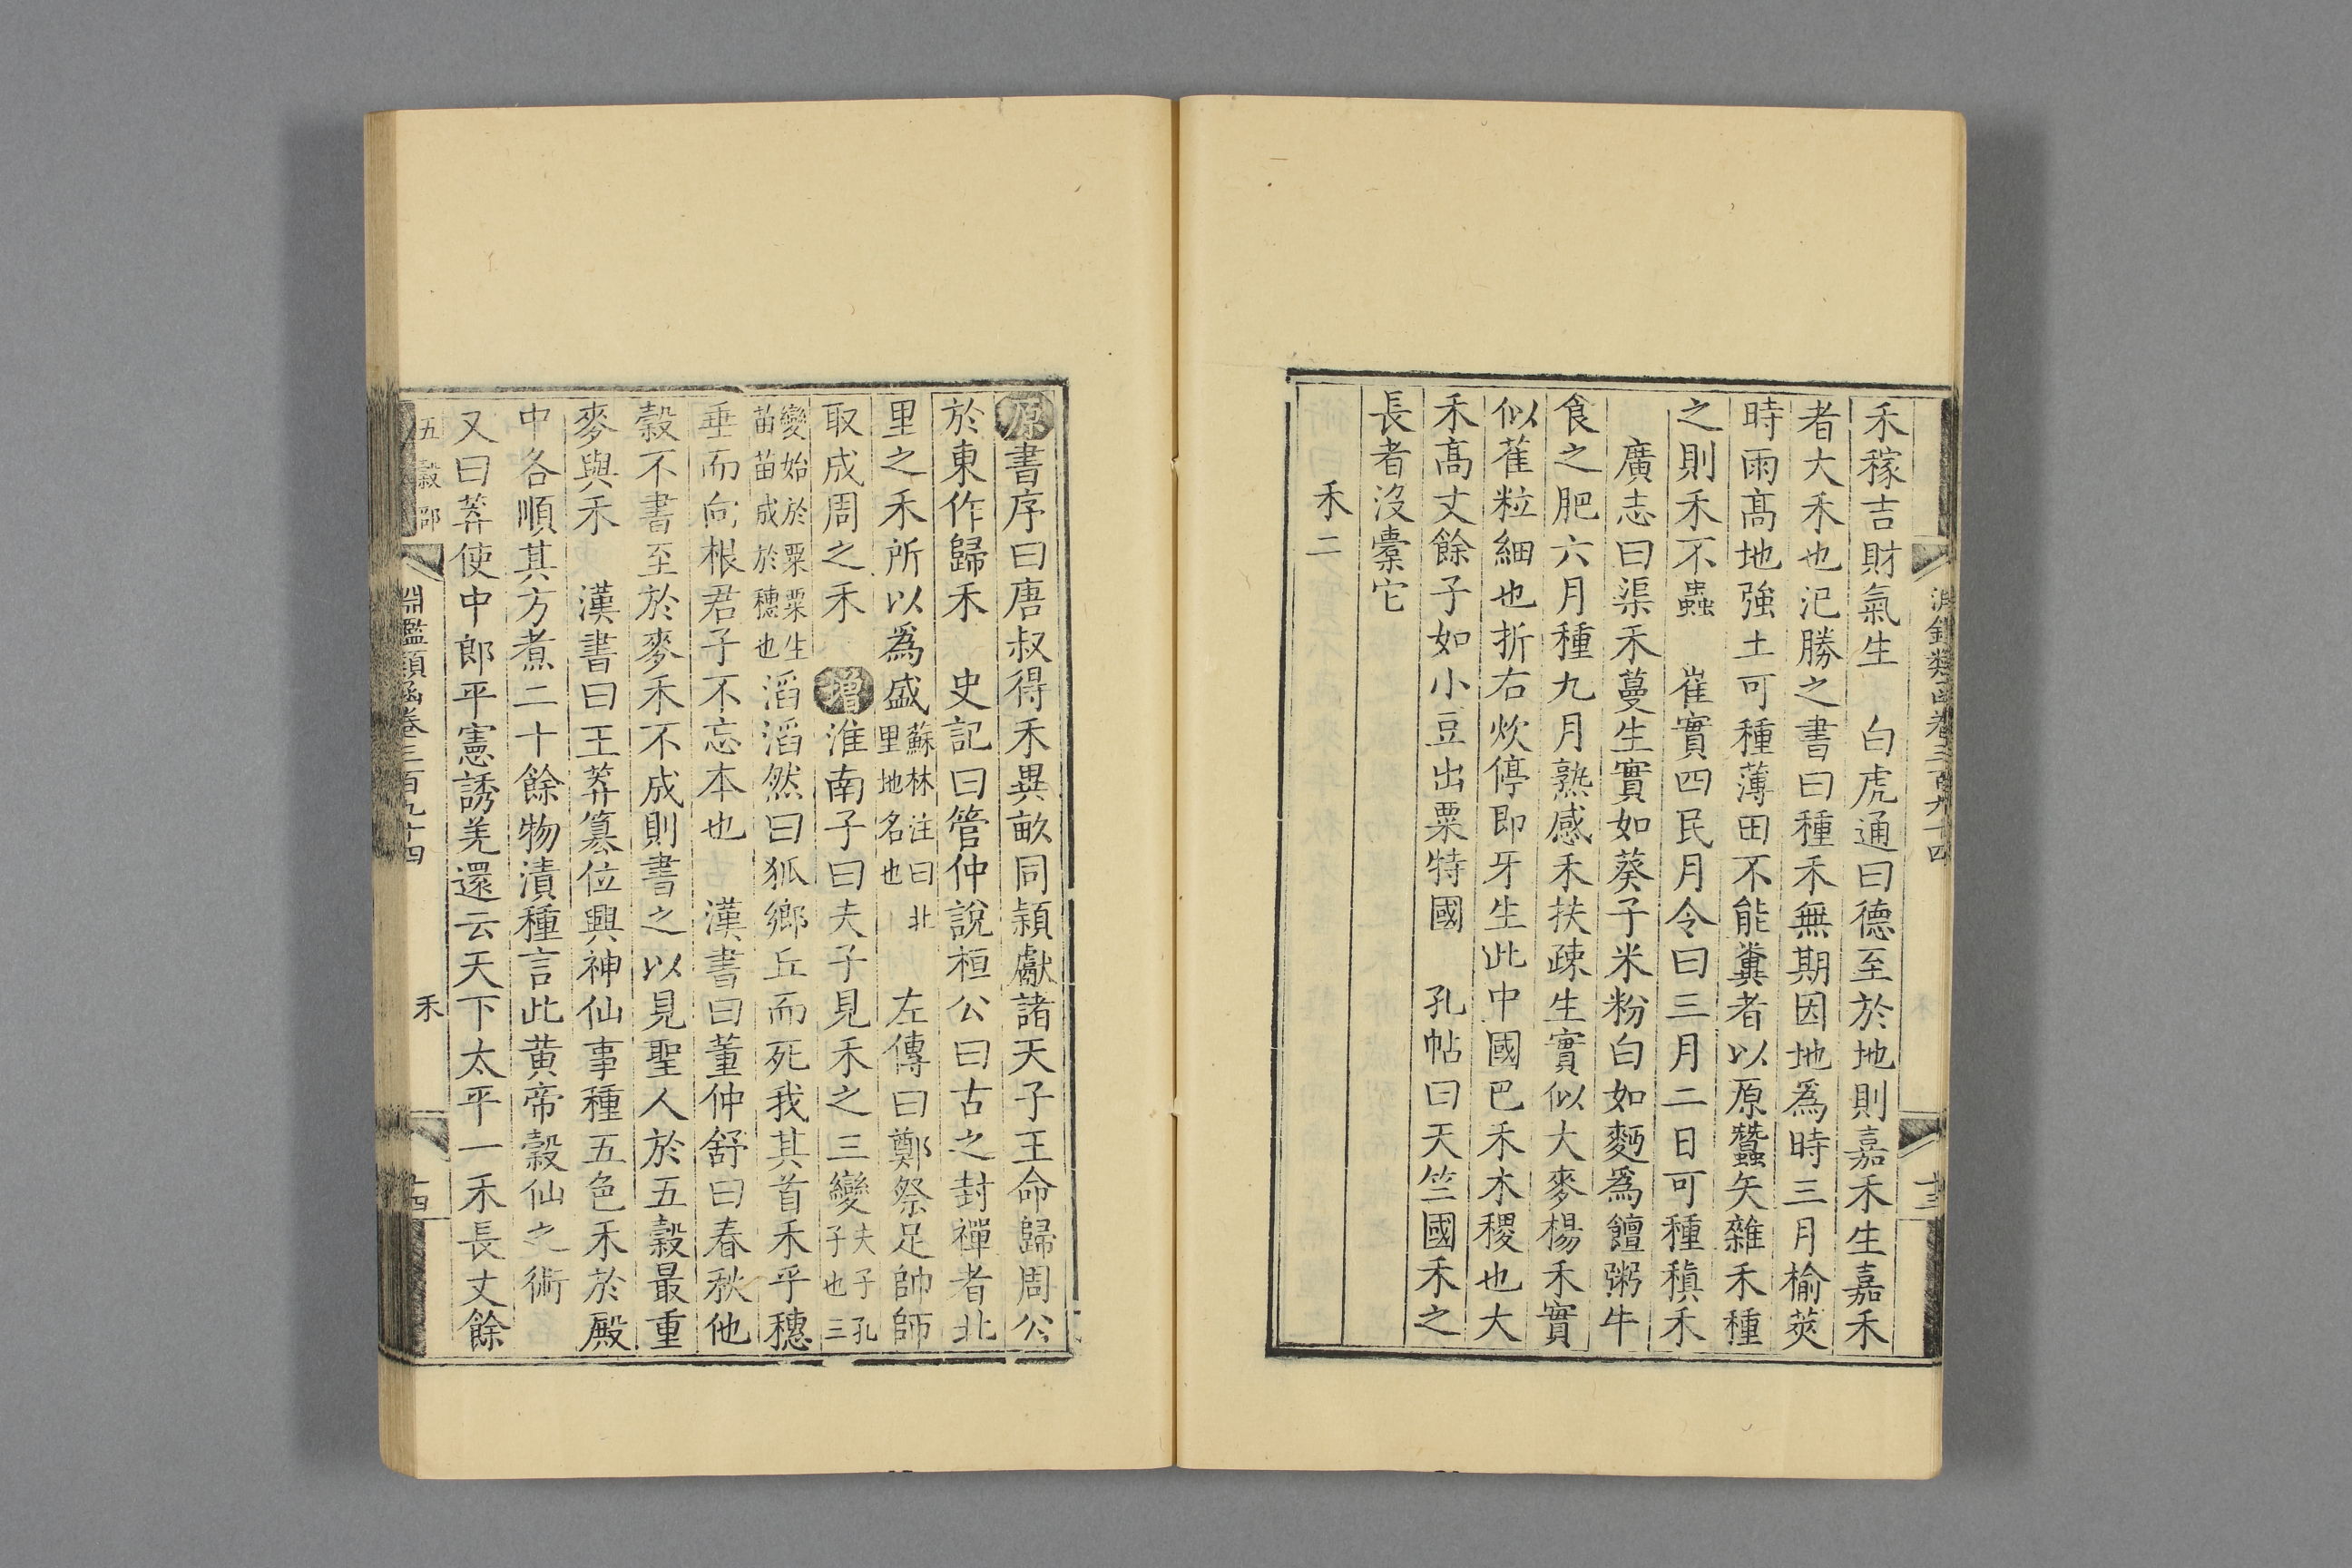 禾稼吉財氣生　白虎通曰德至於地則嘉禾生嘉禾
者大禾也氾勝之書曰種禾無期因地爲時三月榆莢
時雨髙地強土可種薄田不能糞者以原蠶矢雜禾種
之則禾不蟲　崔實四民月令曰三月二日可種稹禾
廣志曰渠禾蔓生實如葵子米粉白如麫爲饘粥牛
食之肥六月種九月熟感禾扶疎生實似大麥楊禾實
似雚粒細也折右炊停即牙生此中國巴禾木稷也大
禾髙丈餘子如小豆出粟特國　孔帖曰天竺國禾之
長者沒橐它
禾二
原書序曰唐叔得禾異畝同穎獻諸天子王命歸周公
於東作歸禾　史記曰管仲說桓公曰古之封禪者北
里之禾所以爲盛蘇林注曰北里地名也　左傳曰鄭祭足帥師
取成周之禾　增淮南子曰夫子見禾之三變夫子孔子也三
變始於粟粟生苗苗成於穗也滔滔然曰狐鄉丘而死我其首禾乎穗
垂而向根君子不忘本也　漢書曰董仲舒曰春秋他
穀不書至於麥禾不成則書之以見聖人於五穀最重
麥與禾　漢書曰王莽簒位興神仙事種五色禾於殿
中各順其方煮二十餘物漬種言此黄帝穀仙之術
又曰莽使中郎平憲誘羌還云天下太平一禾長丈餘
五穀部　淵鑑類函卷三百九十四　禾　十四